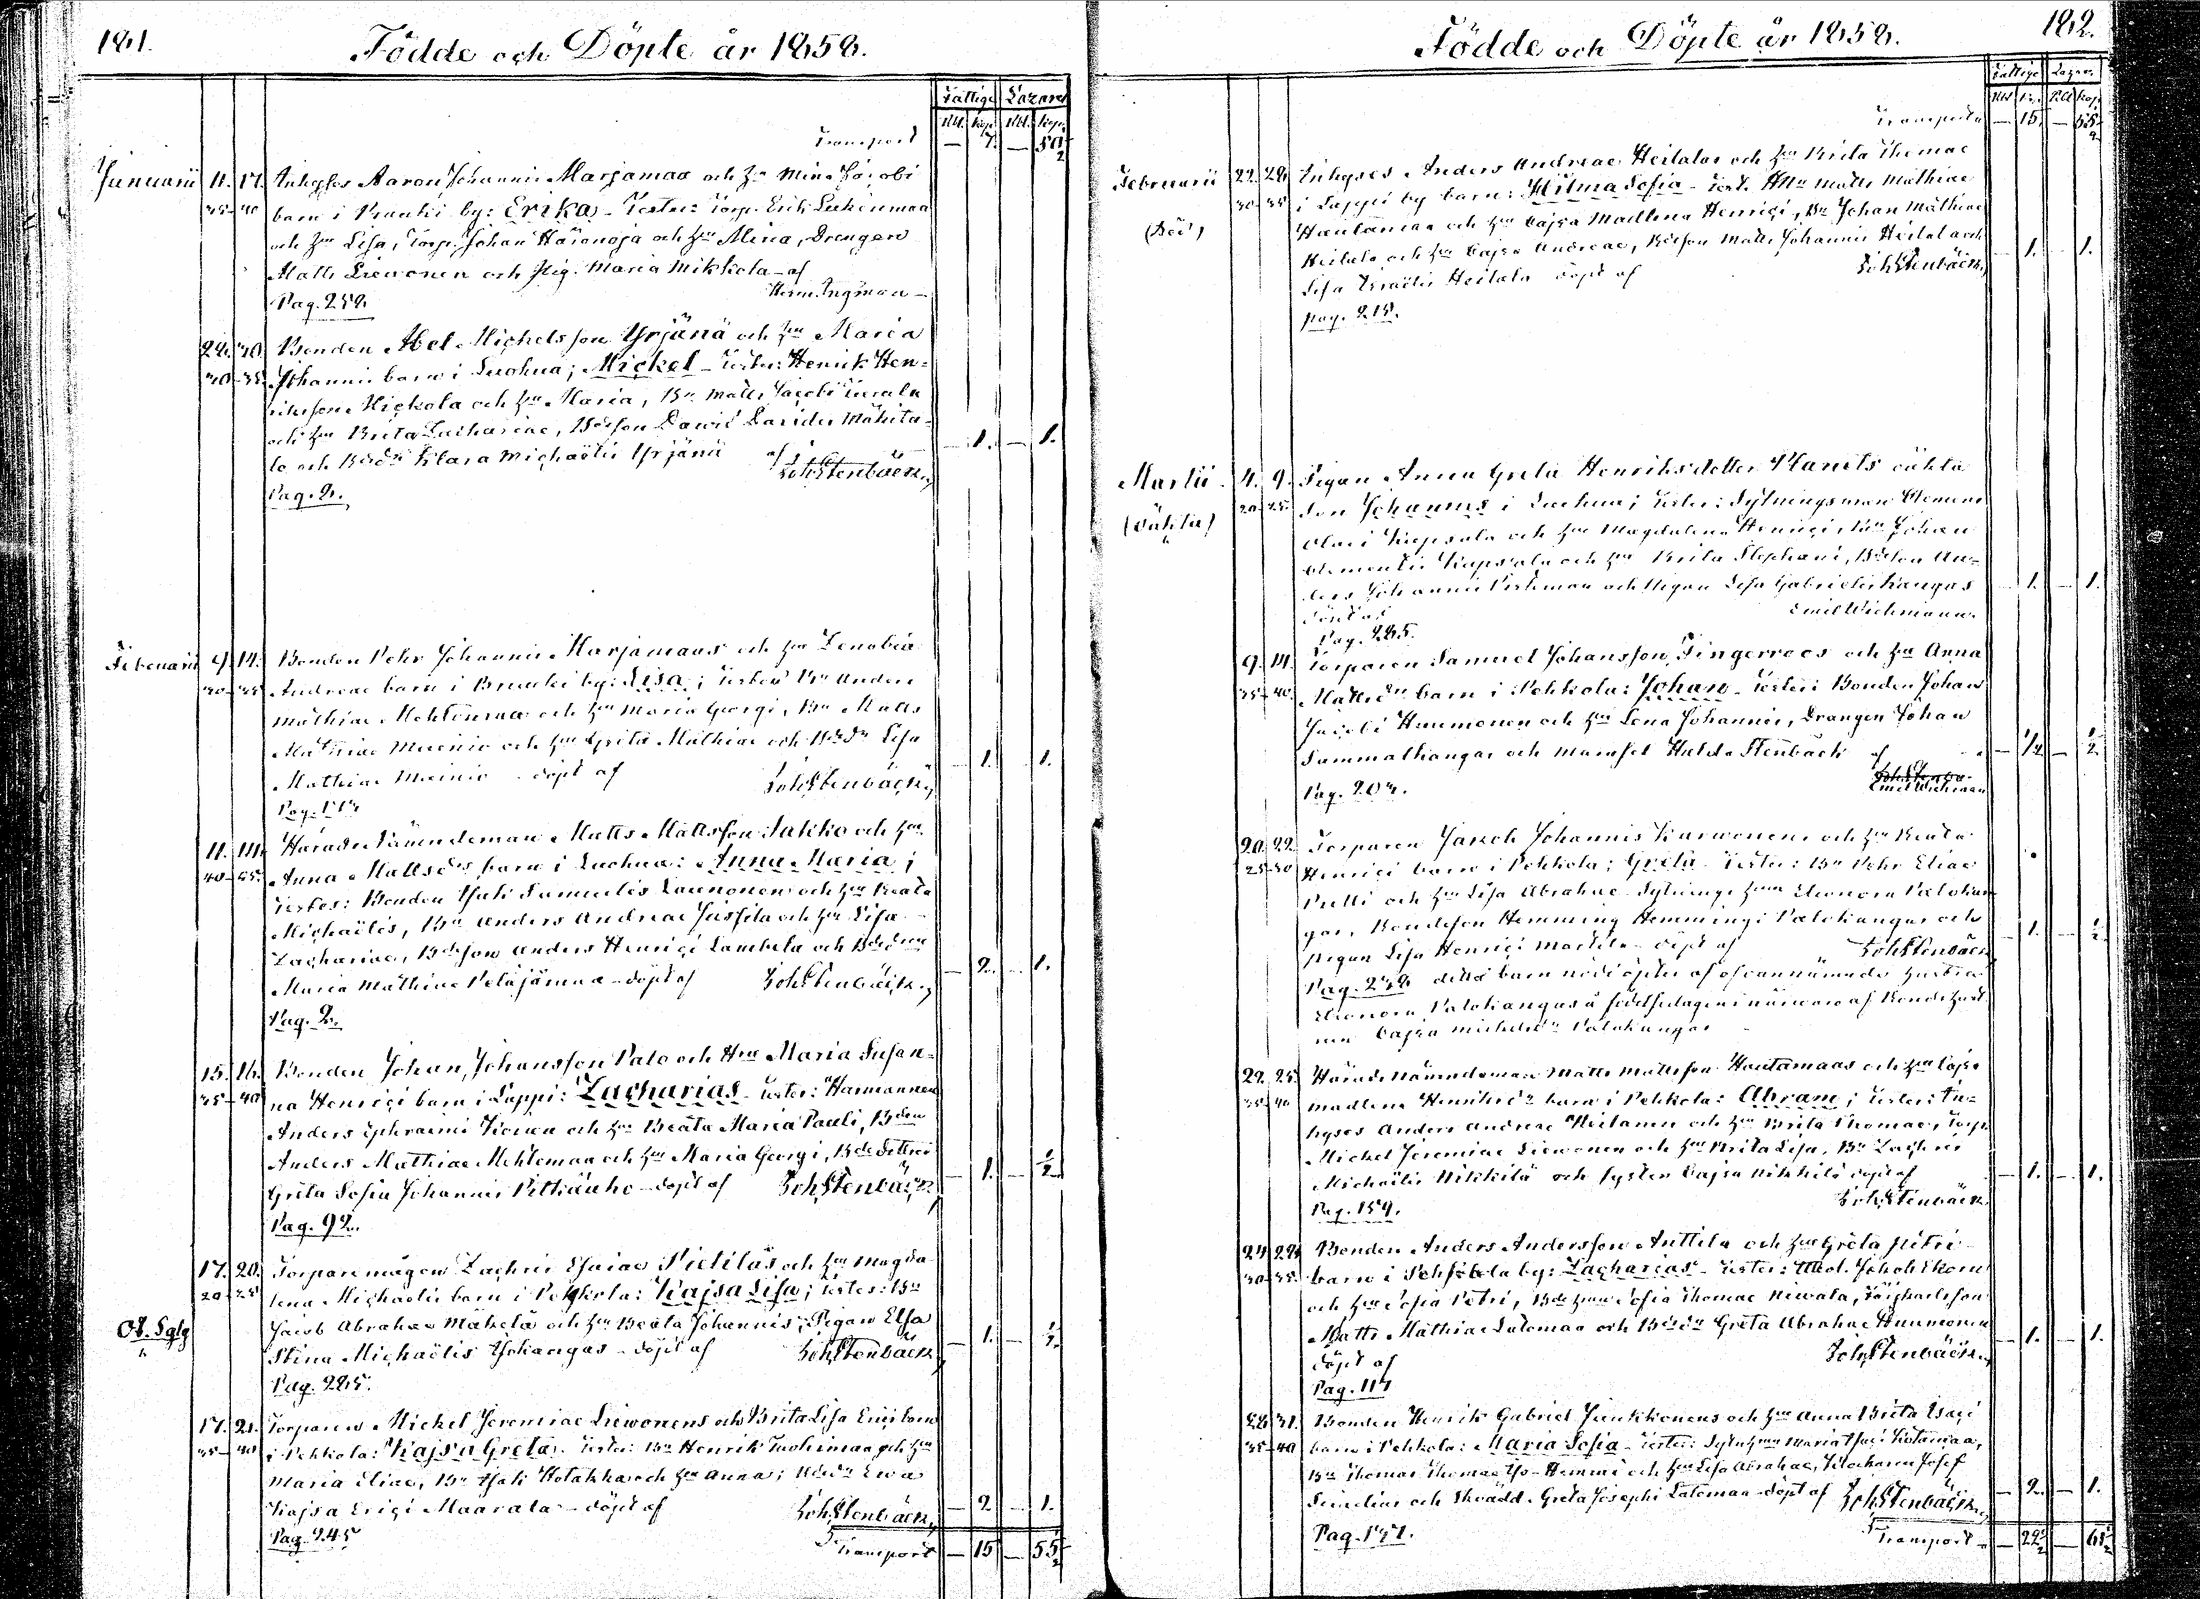 181.
Födde och Döpte år 1858.
Fattige Lazaret
Rbl. kop. Rbl. kop.
Transport — 7. — 50½
Januarii 11. 17. Inhyses Aaron Johannis Marjamaa och Hu Mina Jacobi
35-40 barn i Ruuki by: Erika - Testes: Torp. Erik Leskenmaa
och Hu Lisa, Torp. Johan Härönoja och Hu Mina, Drengen
Matts Liewonen och Pig. Maria Mikkola - af
Herm. Ingman
Pag. 258.
24. 30. Bonden Abel Michelsson Yrjänä och Hu Maria
30-35 Johannis barn i Luohua; Mickel - Testes: Henrik Hen-
riksson Hickola och Hu Maria, Bn Matts Jacobi
och Hu Brita Zachariae, Bdeson Dawid Davides Mäkita-
lo och Bdedr Klara Michaëlis Yrjänä af — 1. — 1.
Joh. Stenbäck
Pag. 2.
Februarii 9. 14. Bonden Pehr Johannis Marjamaas och Hu Zenobia
30-35 Andreae barn i Ruuki by: Lisa; Testes: Bn Anders
Mathiae Mehtomaa och Hu Maria Georgi, Bn Matts
Mathiae Meinio och Hu Greta Mathiae och Bdedr Lisa
Mathiae Meinio - döpt af — 1. — 1.
Joh. Stenbäck
11. 14. Härads Nämndeman Matts Mattsson Jakko och Hu
40-45 Anna Mattsdr barn i Luohua: Anna Maria;
Testes: Bonden Isak Samuelis Launonen och Hu Beata
Michaëlis, Bn Anders Andreae Jussila och Hu Lisa
Zachariae, Bdeson Anders Henrici Lambela och Bdedr
Maria Mathiae Pelajärmaa - döpt af Joh. Stenbäck — 2. — 1.
Pag. 2.
15. 16. Bonden Johan Johansson Palo och Hu Maria Susan-
35-40 na Henrici barn i Lappi: Zacharias - Testes: Husmannen
Anders Ephraimi Kiowa och Hu Beata Maria Pauli, Bden
Anders Mathiae Mehtomaa och Hu Maria Georgi, Bdedottren
Greta Sofia Johannis Pitkäaho - döpt af Joh. Stenbäck — 1. — ½
Pag. 92.
17. 20. Torparemågen Zachris Esaiae Pietiläs och Hu Magda
20-25 lena Michaëlis barn i Pehkola: Kajsa Lisa; Testes: Bn
Ob. Sglg Jacob Abrahae Mäkelä och Hu Beata Johannis; Pigan Elsa
Stina Michaëlis Ahokangas - döpt af Joh. Stenbäck — 1. — ½
Pag. 285.
17. 21. Torparen Mickel Jeremiae Liewonens och Brita Lisa Erici barn
35-40 i Pehkola: Kajsa Greta. Testes: Bn Henrik Tuohimaa och Hu
Maria Eliae, Bn Isak Hotakka och Hu Anna; Bdedr Ewa
Kajsa Erici Maarala - döpt af Joh. Stenbäck — 2 — 1.
Pag. 245
Transport — 15 — 55½
182.
Födde och Döpte år 1858.
Fattige Lazar.
Rbl. kop. Rbl. kop.
Transporten — 15. — 55½
Februarii 22. 28. Inhyses Anders Andreae Heitalas och Hu Brita Thomae
30-35 i Lappi by barn: Hilma Sofia - Test. Matts Mathiae
(Död) Hautamaa och Hu Cajsa Madlena Henrici, Bn Johan Mathiae
Heitala och Hu Cajsa Andreae, Bdeson Matts Johannis Heitala och — 1. — 1.
Lisa Israëlis Heitala döpt af Joh. Stenbäck
pag. 218.
Martii 4. 9. Pigan Anna Greta Henriksdotter Planets oäkta
20-25 son Johannes i Luohua; Testes: Sytningsman Clemens
(Oäkta) Olai Kapsala och Hu Magdalena Henrici, Bn Johan
Clementis Kapsala och Hu Brita Stephani, Bdeson An-
ders Johannis Perhemaa och Pigan Lisa Gabrielis Kangas — 1. — 1.
döpt af Emil Wichmann.
Pag. 285.
9. 14. Torparen Samuel Johansson Fingerroos och Hu Anna
35-40 Mattsdr barn i Pehkola: Johan - Testes: Bonden Johan
Jacobi Huumonen och Hu Lena Johannis, Drengen Johan
Sammalkangas och Mamsel Hulda Stenbäck af — ½ — ½
Emil Wichmann
Pag. 207.
20. 22. Torparen Jakob Johannis Karwonens och Hu Beata
25-30 Henrici barn i Pehkola; Greta - Testes: Bn Pehr Eliae
Pelli och Hu Lisa Abrahae - Sytnings Hu Eleonora Palokan
gas, Bondeson Hemming Hemmingi Palokangas och
pigan Lisa Henrici Mattila - döpt af Joh. Stenbäck — 1. — ½
detta barn nöddöptes af ofvannämnde hustru
Eleonora Palokangas å födelsedagen i närvaro af Bonde hust
run Cajsa Michelsdr Palokangas
22. 25. Härads Nämndeman Matts Mattsson Hautamaas och Hu Cajsa
35-40 Madlena Henriksdr barn i Pehkola: Abram; Testes: In-
hyses Anders Andreae Heitamu och Hu Brita Thomae, Torp.
Mickel Jeremiae Liewonen och Hu Brita Lisa, Bn Zachris
Michaëlis Nikkilä och syster Cajsa Nikkilä döpt af — 1. — 1.
Pag. 159. Joh. Stenbäck
24. 28. Bonden Anders Andersson Anttila och Hu Greta Petri
30-35 barn i Pehkola by: Zacharias - Testes: Jakob Ekorn
och Hu Sofia Petri, Bde Hu Sofia Thomae Niwala,
Matts Mathiae Latomaa och Bdedr Greta Abrahae Huumonen — 1. — 1.
döpt af Joh. Stenbäck
Pag. 117
28. 31. Bonden Henrik Gabriel Junkkonens och Hu Anna Brita Isaci
35-40 barn i Pehkola: Maria Sofia - Testes: Sytn Hu Maria Isaci Kotamaa,
Bn Thomas Thomae Yli-Hemmi och Hu Lisa Abrahae, Klockaren Josef
Simelius och Skrädd. Greta Josephi Latomaa - döpt af Joh. Stenbäck — 2. — 1.
Transport — 22½ — 61½